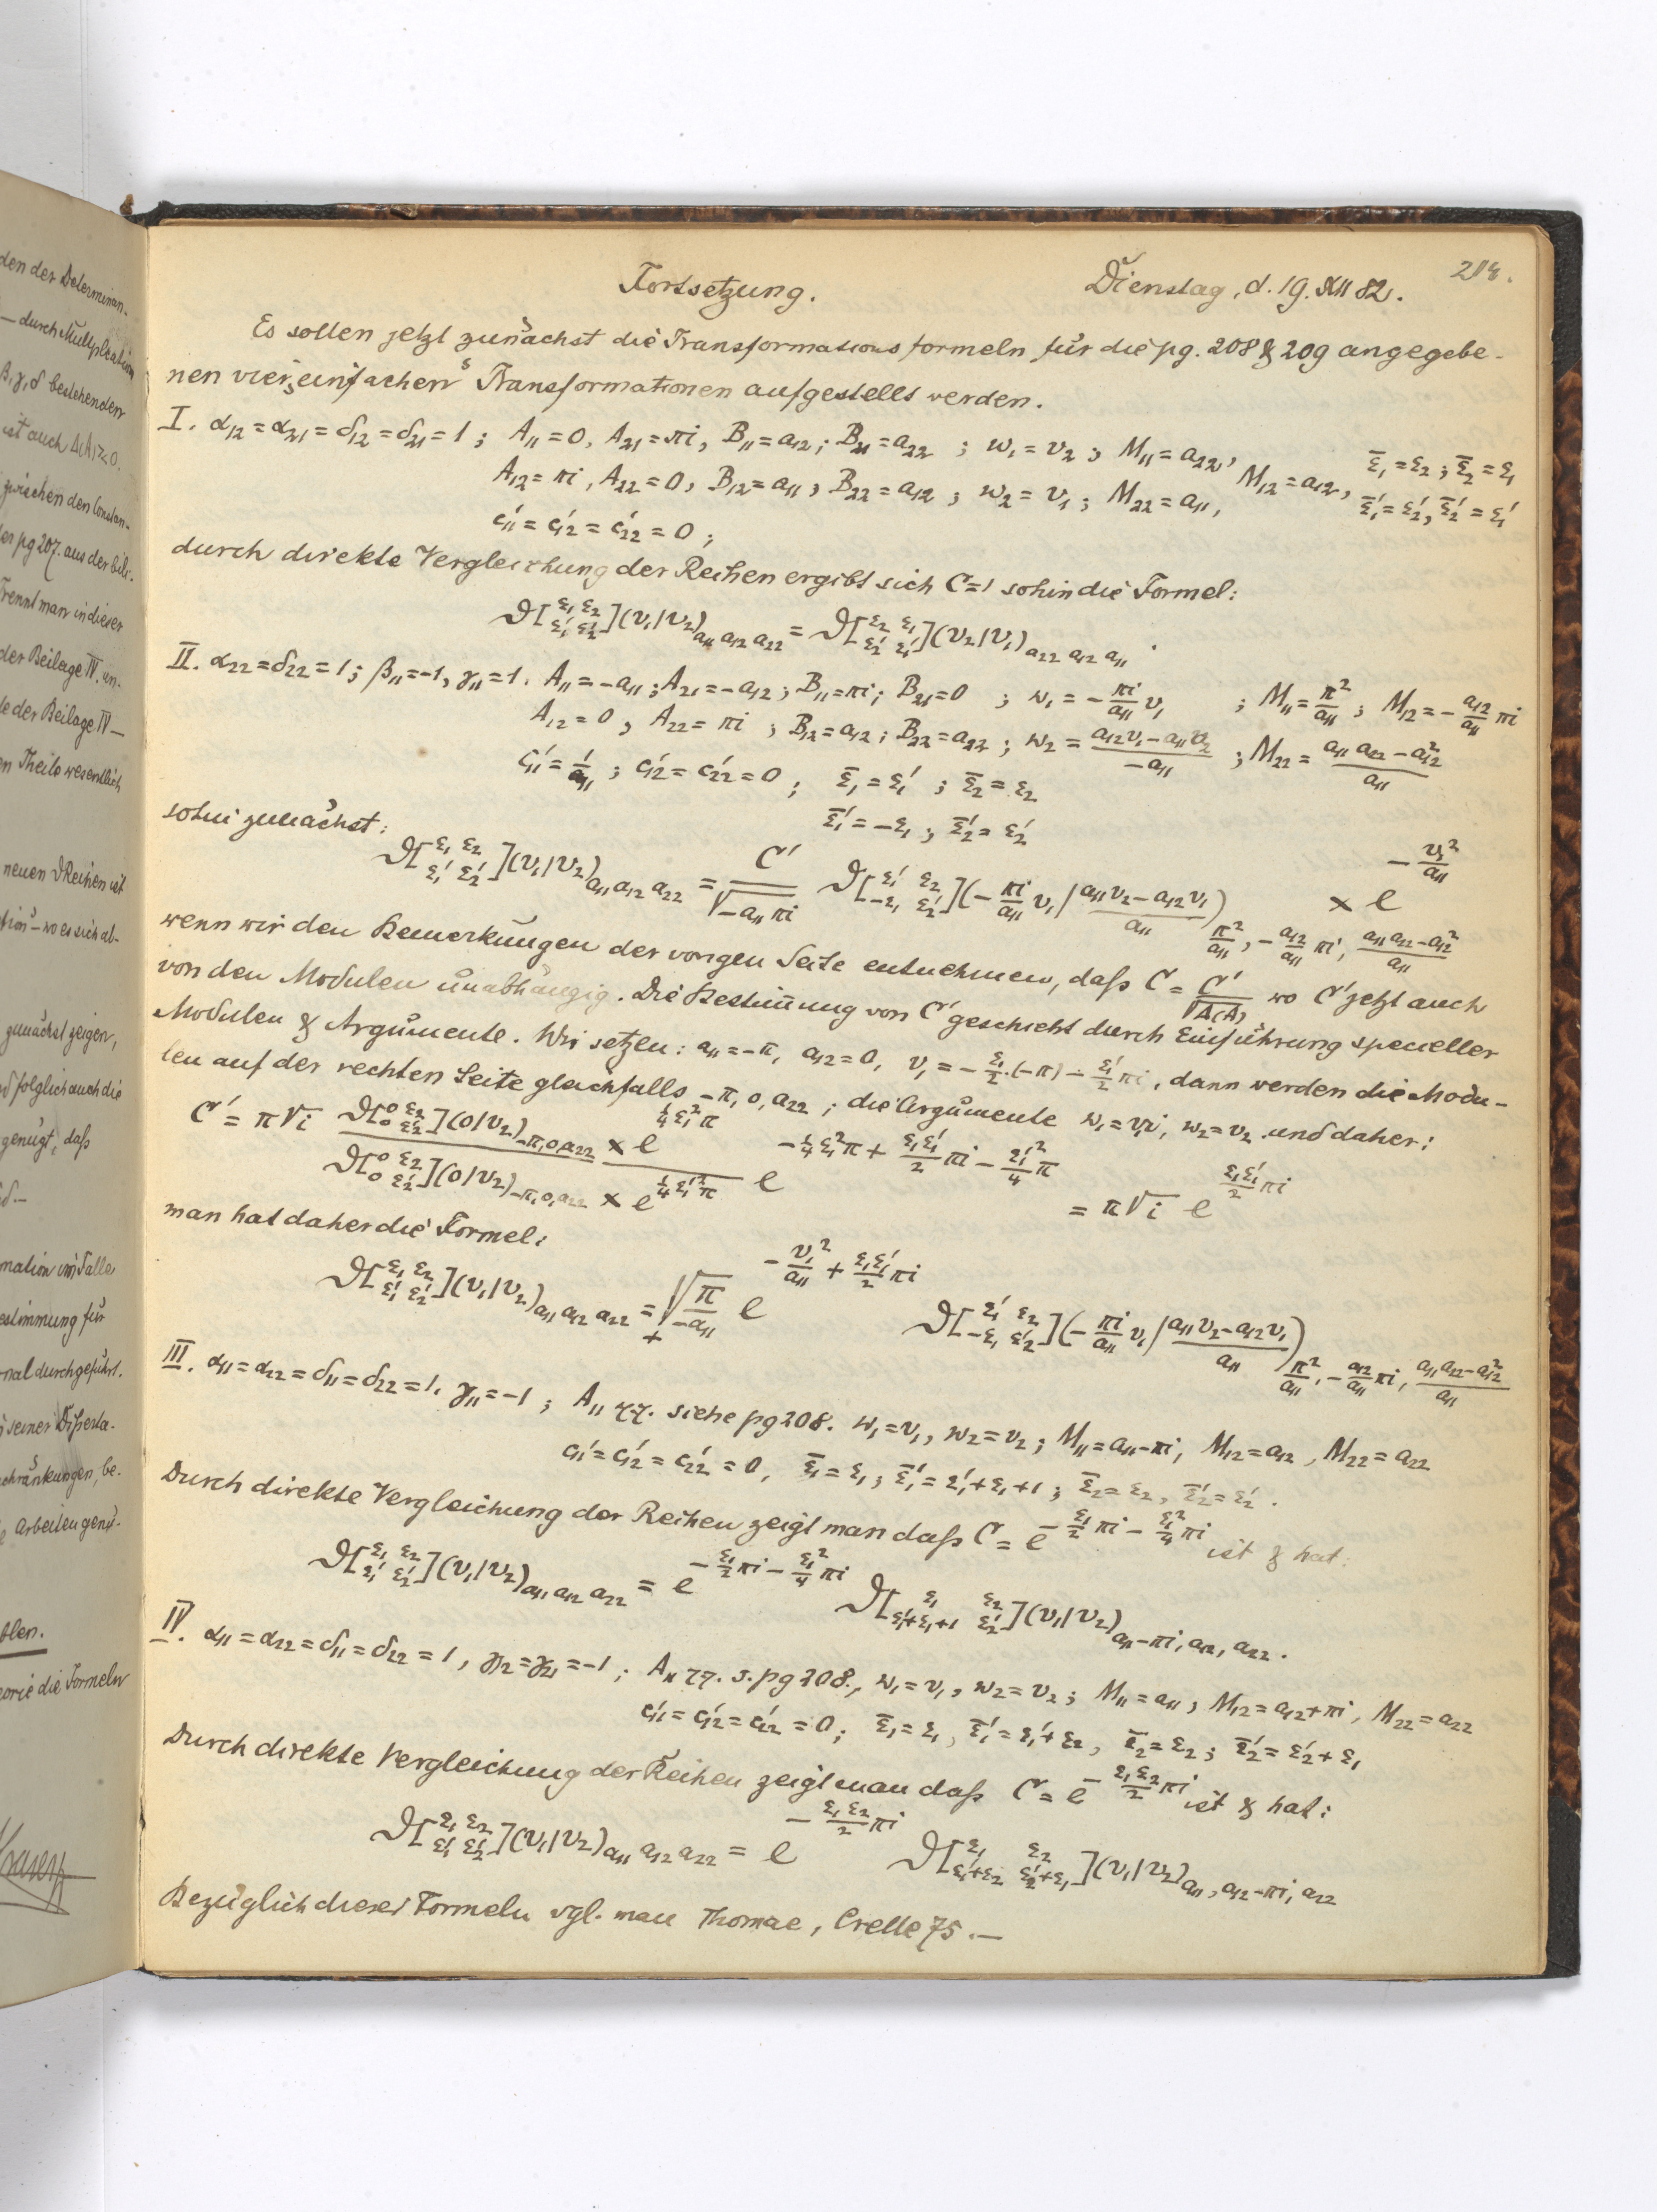 den der Determinan-
— durch Multiplication
β, γ, δ bestehenden
ist auch Δ(A) ≷ 0.
zwischen den Constan-
pg 207. aus der bili-
Trennt man in dieser
der Beilage IV. an-
der Beilage IV —
Theile wesentlich
neuen ϑ Reihen ist
— wo es sich ab-
zunächst zeigen,
folglich auch die
genügt, daß
im Falle
estimmung für
mal durchgeführt.
seiner Disserta-
schränkungen, be-
Arbeiten
die Formeln
214.
Fortsetzung. Dienstag, d. 19. XII 82.
Es sollen jetzt zunächst die Transformationsformeln für die pg. 208 & 209 angegebe-
nen vier „einfachen“ Transformationen aufgestellt werden.
I. α₁₂ = α₂₁ = δ₁₂ = δ₂₁ = 1 ; A₁₁ = 0, A₂₁ = πi, B₁₁ = a₁₂ ; B₂₁ = a₂₂ ; w₁ = v₂ ; M₁₁ = a₂₂, M₁₂ = a₁₂, ε̄₁ = ε₂ ; ε̄₂ = ε₁
A₁₂ = πi, A₂₂ = 0, B₁₂ = a₁₁, B₂₂ = a₁₂ ; w₂ = v₁ ; M₂₂ = a₁₁, ε̄₁′ = ε₂′, ε̄₂′ = ε₁′
c₁₁′ = c₁₂′ = c₂₂′ = 0 ;
durch direkte Vergleichung der Reihen ergibt sich C = 1 sohin die Formel:
ϑ[ε₁ ε₂ / ε₁′ ε₂′](v₁|v₂)a₁₁ a₁₂ a₂₂ = ϑ[ε₂ ε₁ / ε₂′ ε₁′](v₂|v₁)a₂₂ a₁₂ a₁₁.
II. α₂₂ = δ₂₂ = 1 ; β₁₁ = -1, γ₁₁ = 1. A₁₁ = -a₁₁ ; A₂₁ = -a₁₂ ; B₁₁ = πi ; B₂₁ = 0 ; w₁ = -πi/a₁₁ v₁ ; M₁₁ = π²/a₁₁ ; M₁₂ = -a₁₂/a₁₁ πi
A₁₂ = 0, A₂₂ = πi ; B₁₂ = a₁₂ ; B₂₂ = a₂₂ ; w₂ = (a₁₂v₁ - a₁₁v₂)/(-a₁₁) ; M₂₂ = (a₁₁a₂₂ - a₁₂²)/a₁₁
c₁₁′ = 1/a₁₁ ; c₁₂′ = c₂₂′ = 0 ; ε̄₁ = ε₁′ ; ε̄₂ = ε₂
ε̄₁′ = -ε₁ ; ε̄₂′ = ε₂′
sohin zunächst:
ϑ[ε₁ ε₂ / ε₁′ ε₂′](v₁|v₂)a₁₁ a₁₂ a₂₂ = C′/√(-a₁₁πi) ϑ[ε₁′ ε₂ / -ε₁ ε₂′](-πi/a₁₁ v₁ | (a₁₁v₂ - a₁₂v₁)/a₁₁)π²/a₁₁, -a₁₂/a₁₁ πi, (a₁₁a₂₂ - a₁₂²)/a₁₁ × e^(-v₁²/a₁₁)
wenn wir den Bemerkungen der vorigen Seite entnehmen, daß C = C′/√Δ(A) wo C′ jetzt auch
von den Modulen unabhängig. Die Bestim̅ung von C′ geschieht durch Einführung specieller
Modulen & Argumente. Wir setzen: a₁₁ = -π, a₁₂ = 0, v₁ = -ε₁/2·(-π) - ε₁′/2 πi, dann werden die Modu-
len auf der rechten Seite gleichfalls -π, 0, a₂₂ ; die Argumente w₁ = v₁i, w₂ = v₂ und daher:
C′ = π√i (ϑ[0 ε₂ / 0 ε₂′](0|v₂)-π,0,a₂₂ × e^(¼ε₁²π))/(ϑ[0 ε₂ / 0 ε₂′](0|v₂)-π,0,a₂₂ × e^(¼ε₁′²π)) e^(-¼ε₁²π + ε₁ε₁′/2 πi - ε₁′²/4 π) = π√i e^(ε₁ε₁′/2 πi)
man hat daher die Formel:
ϑ[ε₁ ε₂ / ε₁′ ε₂′](v₁|v₂)a₁₁ a₁₂ a₂₂ = +√(π/-a₁₁) e^(-v₁²/a₁₁ + ε₁ε₁′/2 πi) ϑ[ε₁′ ε₂ / -ε₁ ε₂′](-πi/a₁₁ v₁ | (a₁₁v₂ - a₁₂v₁)/a₁₁)π²/a₁₁, -a₁₂/a₁₁ πi, (a₁₁a₂₂ - a₁₂²)/a₁₁
III. α₁₁ = α₂₂ = δ₁₁ = δ₂₂ = 1, γ₁₁ = -1 ; A₁₁ siehe pg 208. w₁ = v₁, w₂ = v₂ ; M₁₁ = a₁₁ - πi, M₁₂ = a₁₂, M₂₂ = a₂₂
c₁₁′ = c₁₂′ = c₂₂′ = 0, ε̄₁ = ε₁ ; ε̄₁′ = ε₁′ + ε₁ + 1 ; ε̄₂ = ε₂, ε̄₂′ = ε₂′.
Durch direkte Vergleichung der Reihen zeigt man daß C = e^(-ε₁/2 πi - ε₁²/4 πi) ist & hat:
ϑ[ε₁ ε₂ / ε₁′ ε₂′](v₁|v₂)a₁₁ a₁₂ a₂₂ = e^(-ε₁/2 πi - ε₁²/4 πi) ϑ[ε₁ ε₂ / ε₁′+ε₁+1 ε₂′](v₁|v₂)a₁₁-πi, a₁₂, a₂₂.
IV. α₁₁ = α₂₂ = δ₁₁ = δ₂₂ = 1, γ₁₂ = γ₂₁ = -1 ; A₁₁ s. pg 208., w₁ = v₁, w₂ = v₂ ; M₁₁ = a₁₁, M₁₂ = a₁₂+πi, M₂₂ = a₂₂
c₁₁′ = c₁₂′ = c₂₂′ = 0 ; ε̄₁ = ε₁, ε̄₁′ = ε₁′+ε₂, ε̄₂ = ε₂ ; ε̄₂′ = ε₂′+ε₁
Durch direkte Vergleichung der Reihen zeigt man daß C = e^(-ε₁ε₂/2 πi) ist & hat:
ϑ[ε₁ ε₂ / ε₁′ ε₂′](v₁|v₂)a₁₁ a₁₂ a₂₂ = e^(-ε₁ε₂/2 πi) ϑ[ε₁ ε₂ / ε₁′+ε₂ ε₂′+ε₁](v₁|v₂)a₁₁, a₁₂-πi, a₂₂
Bezüglich dieser Formeln vgl. man Thomae, Crelle 75.—